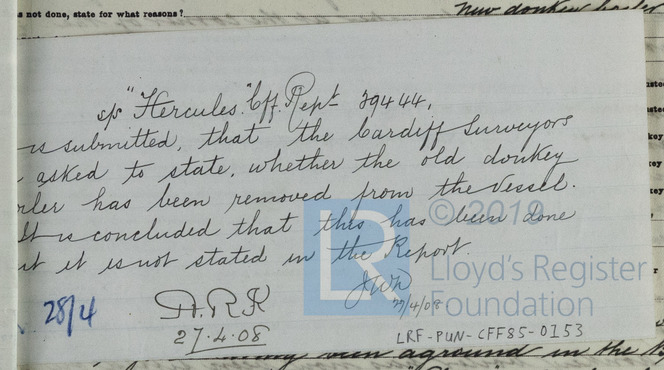 s not done, state for what reasons?
New donkey boiler
s/s "Hercules." Cff. Rept 39444.
is submitted, that the Cardiff Surveyors
asked to state, whether the old donkey
oiler has been removed from the Vessel.
It is concluded that this has been done
ut it is not stated in the Report.
© 2019
Lloyd's Register
Foundation
LR
JWD
27/4/08
28/4
A.R.K
27.4.08
LRF-PUN-CFF85-0153
been aground in the